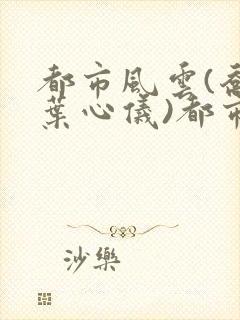 都市風雲(喬
葉心儀)都市
沙樂